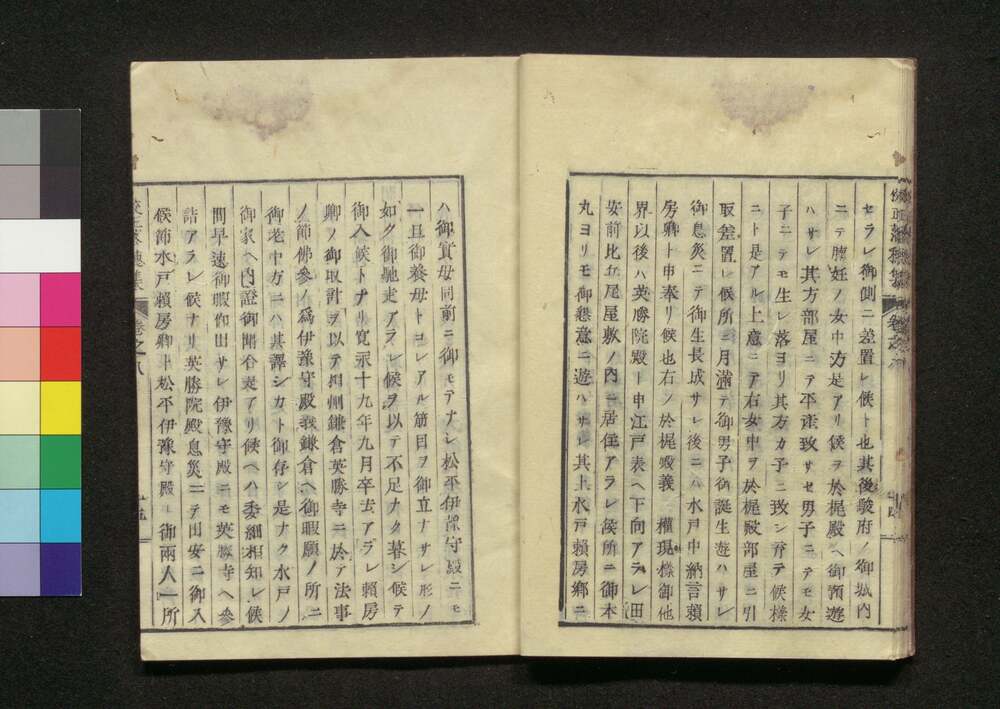 セラレ御側ニ差置レ候ト也其後駿府ノ御城內
ニテ脺妊ノ女中方是アリ候ヲ於梶殿ヘ御預遊
ハサレ其方部屋ニテ平產致サセ男子ニテモ女
子ニテモ生レ落ヨリ其方カ子ニ致シ育テ候樣
ニト是アル上意ニテ右女中ヲ於梶殿部屋ニ引
取差置レ候所ニ月滿テ御男子御誕生遊ハサレ
御息災ニテ御生長成サレ後ニハ水戶中納言賴
房卿ト申奉リ候也右ノ於梶殿義 權現樣御他
界以後ハ英勝院殿ト申江戶表ヘ下向アラレ田
安前比丘尼屋敷ノ內ニ居住アラレ候所ニ御本
丸ヨリモ御懇意ニ遊ハサレ其上水戶賴房鄉ニ
ハ御實母同前ニ御モテナシ松平伊豫守殿ニモ
一旦御養母トコレアル筋目ヲ御立ナサレ形ノ
如ク御馳走アラレ候ヲ以テ不足ナク暮シ候テ
御入候トナリ寬永十九年九月卒去アラレ賴房
卿ノ御取計ヲ以テ相州鎌倉英勝寺ニ於テ法事
ノ節佛參ノ爲伊豫守殿義鎌倉ヘ御暇願ノ所ニ
御老中方ニハ其譯シカト御存シ是ナク水戶ノ
御家ヘ內證御聞合是アリ候ヘハ委細相知レ候
間早速御暇仰出サレ伊豫守殿ニモ英勝寺ヘ參
詣アラレ候ナリ英勝院殿息災ニテ田安ニ御入
候節水戶賴房卿ト松平伊豫守殿ト御兩人一所
卷之八
十五